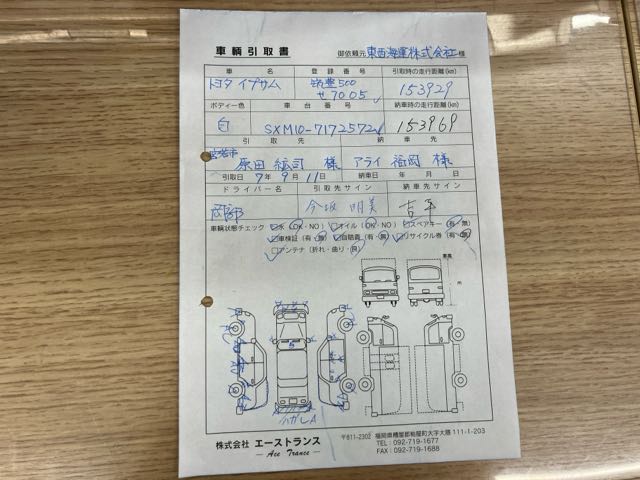 車輌引取書
御依頼元 東西海運株式会社 様
車名 登録番号 引取時の走行距離(km)
トヨタ イプサム 筑豊500 せ7005 153929
ボディー色 車台番号 納車時の走行距離(km)
白 SXM10-7172572 153969
引取先 納車先
宮若市
原田 紘司 様 アライ 福岡 様
引取日 7年9月11日 納車日 年 月 日
ドライバーサイン 引取先サイン 納車先サイン
岡部 今坂 明美
車輌状態チェック □水(OK・NO) □オイル(OK・NO) □スペアキー(有・無)
□車検証(有・無) □自賠責(有・無) □リサイクル券(有・無)
□アンテナ(折れ・曲り・無)
車高
m
ハガレA
株式会社 エーストランス
— Ace Trance —
〒811-2302 福岡県糟屋郡粕屋町大字大隈111-1-203
TEL:092-719-1677
FAX:092-719-1688